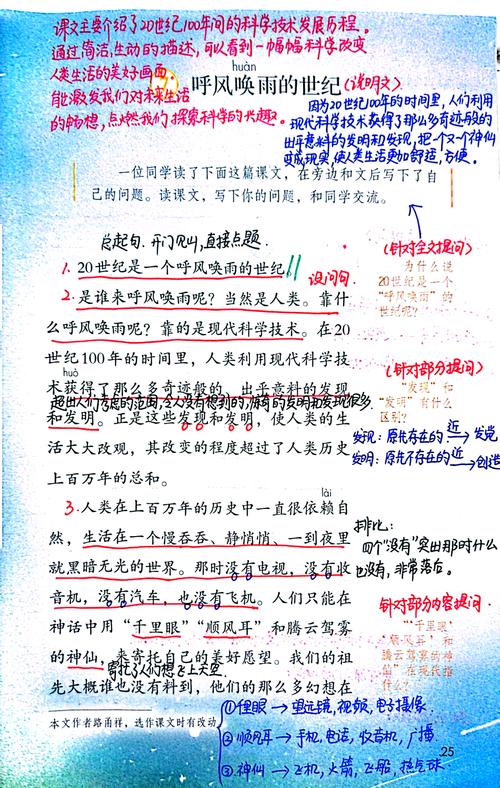 课文主要介绍了20世纪100年间的科学技术发展历程。
通过简洁,生动的描述,可以看到一幅幅科学改变
人类生活的美好画面,
能激发我们对未来生活
的畅想,点燃我们探索科学的兴趣。
huàn
呼风唤雨的世纪
(说明文)
因为20世纪100年的时间里,人们利用
现代科学技术获得了那么多奇迹般的
出乎意料的发明和发现,把一个又一个神仙
变成现实,使人类生活更加舒适,方便。
一位同学读了下面这篇课文,在旁边和文后写下了自
己的问题。读课文,写下你的问题,和同学交流。
总起句、开门见山,直接点题.
1. 20世纪是一个呼风唤雨的世纪
设问句.
2. 是谁来呼风唤雨呢?当然是人类。靠什
么呼风唤雨呢?靠的是现代科学技术。在20
世纪100年的时间里,人类利用现代科学技
huò
术获得了那么多奇迹般的、出乎意料的发现
超出人们考虑的范围,令人没有想到的,原有的发明和发现很多.
和发明。正是这些发现和发明,使人类的生
活大大改观,其改变的程度超过了人类历史
上百万年的总和。
(针对全文提问)
为什么说
20世纪是一个
“呼风唤雨”的
世纪呢?
(针对部分提问)
“发现”和
“发明”有什么
区别?
发现:原先存在的 近→ 发觉
发明:原先不存在的 近→创造
lài
3. 人类在上百万年的历史中一直很依赖自
然,生活在一个慢吞吞、静悄悄、一到夜里
就黑暗无光的世界。那时没有电视,没有收
音机,没有汽车,也没有飞机。人们只能在
神话中用“千里眼”“顺风耳”和腾云驾雾
的神仙,来寄托自己的美好愿望。我们的祖
寄托了人们想飞上天空.
先大概谁也没有料到,他们的那么多幻想在
排比:
四个“没有”突出那时什么
也没有,非常落后。
针对部分内容提问.
“‘千里眼’
‘顺风耳’和
腾云驾雾的神
仙”在现代指
什么?
本文作者路甬祥,选作课文时有改动。
①千里眼→望远镜,视频,电子摄像.
②顺风耳→手机,电话,收音机,广播.
③神仙→飞机,火箭,飞船,热气球.
25